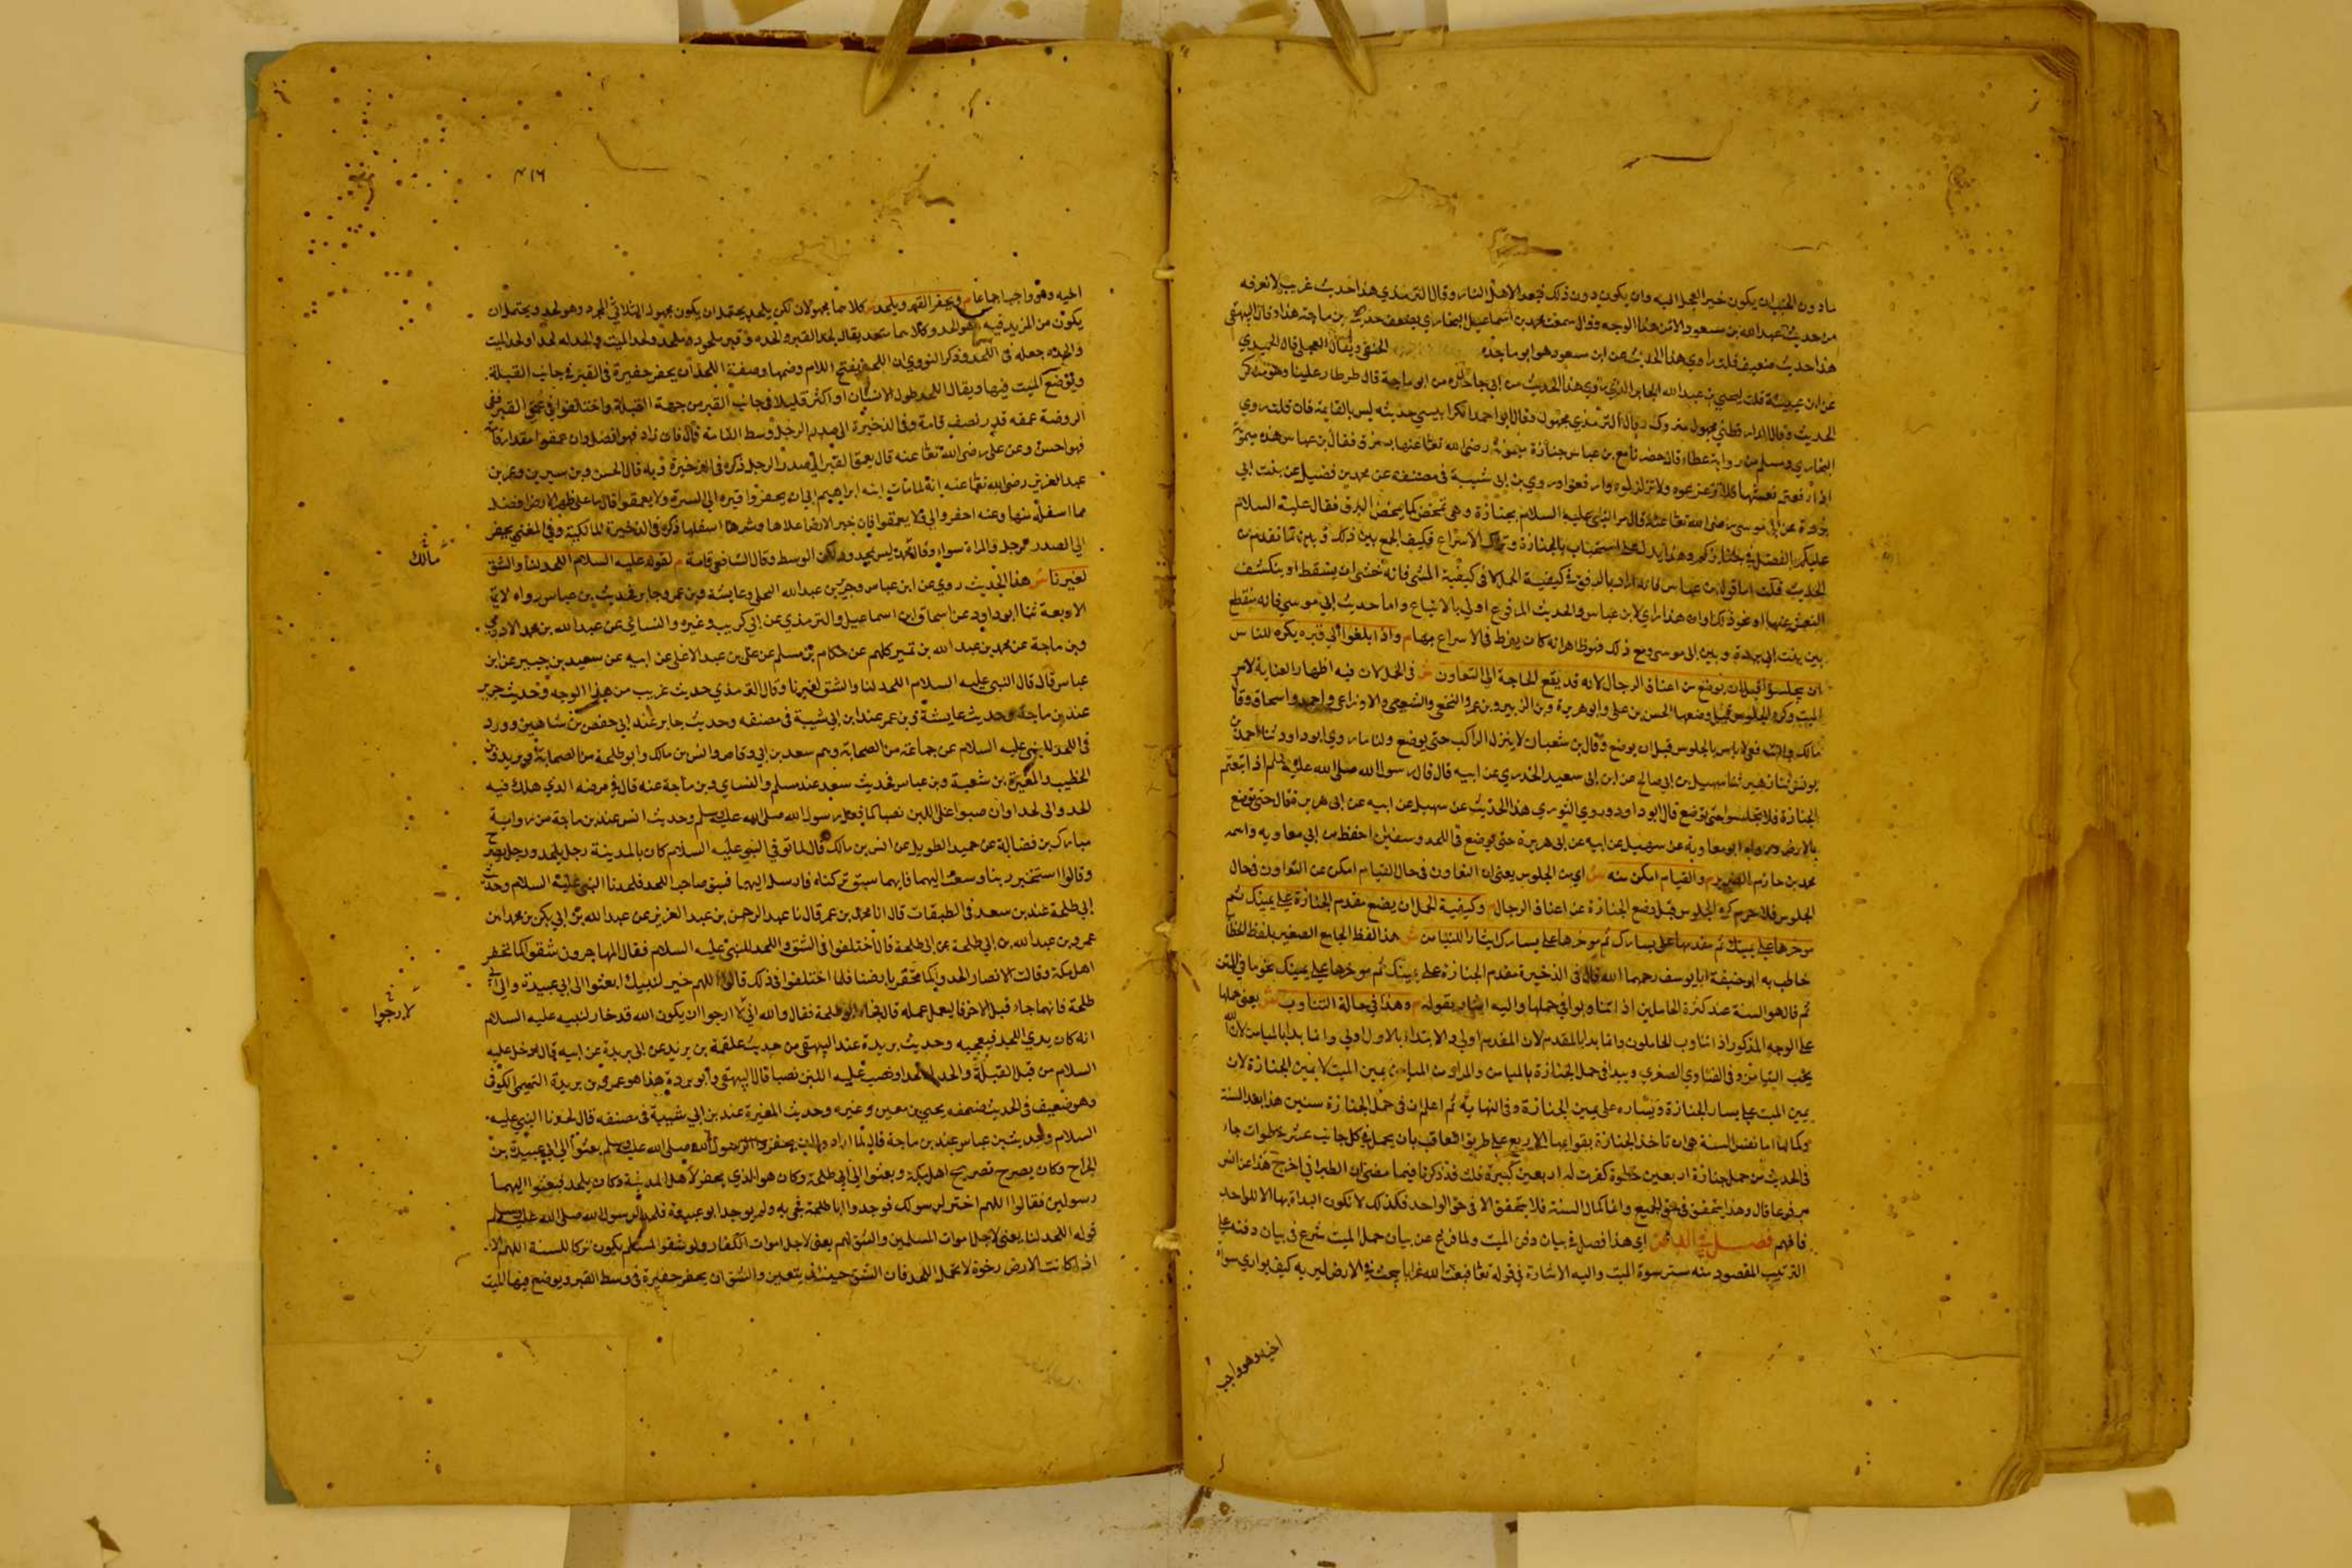 ما دون الخبب ان يكون خيرا تعجل اليه وان يكون دون ذلك فبعدا لاهل النار وقال الترمذي هذا حديث غريب لا نعرفه
من حديث عبد الله بن مسعود الا من هذا الوجه وقال سمعت محمد بن اسماعيل البخاري يضعف حديث بن ماجة هذا وقال البيهقي
هذا حديث ضعيف قلت راوي هذا الحديث عن ابن مسعود هو ابو ماجدة الحنفي ويقال العجلي قال الحميدي
عن ابن عيينة قلت ليحيى بن عبد الله الجابر الذي روى هذا الحديث من ابو ماجدة قال طير طار علينا وهو منكر
الحديث وقال الدارقطني مجهول متروك وقال الترمذي مجهول وقال ابو احمد الكرابيسي حديثه ليس بالقايم فان قلت روى
البخاري ومسلم من رواية عطاء قال حضرنا مع بن عباس جنازة ميمونة رضي الله تعا عنها بسرف فقال بن عباس هذه ميمونة
اذا رفعتم نعشها فلا تزعزعوه ولا تزلزلوه وارفعوا وروى بن ابي شيبة في مصنفه عن محمد بن فضيل عن بنت ابي
بردة عن ابي موسى رضي الله تعا عنه قال مر النبي عليه السلام بجنازة وهي تمخض كما يمخض الزق فقال عليه السلام
عليكم بالقصد في جنائزكم وهذا يدل على استحباب بالجنازة وترك الاسراع فكيف الجمع بين ذلك وبين ما تقدم من
الحديث قلت اما قول بن عباس فانه اراد به الرفق في كيفية الحمل لا في كيفية المشي فانه خشي ان يسقط او ينكشف
النعش عنها او نحو ذلك او ان هذا راي لابن عباس والحديث المرفوع اولى بالاتباع واما حديث ابي موسى فانه منقطع
بين بنت ابي بردة وبين ابي موسى ومع ذلك فهو ظاهر انه كان يفرط في الاسراع بها م واذا بلغوا الى قبره يكره للناس
ان يجلسوا قبل ان يوضع من اعناق الرجال لانه قد يقع الحاجة الى التعاون ش في الحمل لان فيه اظهار العناية لامر
الميت وكره الجلوس قبل وضعها الحسن بن علي وابو هريرة وبن الزبير وبن عمر والنخعي والشعبي والاوزاعي واحمد واسحاق وقال
مالك والشافعي لا باس بالجلوس قبل ان يوضع وقال بن شعبان لا ينزل الراكب حتى يوضع ولنا ما روى ابو داود ثنا احمد بن
يونس ثنا زهير ثنا سهيل بن ابي صالح عن ابن ابي سعيد الخدري عن ابيه قال قال رسول الله صلى الله عليه وسلم اذا اتبعتم
الجنازة فلا تجلسوا حتى توضع قال ابو داود وروى الثوري هذا الحديث عن سهيل عن ابيه عن ابي هريرة فقال حتى توضع
بالارض ورواه ابو معاوية عن سهيل عن ابيه عن ابي هريرة حتى توضع في اللحد وسفين احفظ من ابي معاوية واسمه
محمد بن حازم الضرير م والقيام امكن منه ش اي من الجلوس يعني ان التعاون في حال القيام امكن من التعاون في حال
الجلوس فلا جرم كره الجلوس قبل وضع الجنازة عن اعناق الرجال م وكيفية الحمل ان يضع مقدم الجنازة على يمينك ثم
موخرها على يمينك ثم مقدمها على يسارك ثم موخرها على يسارك ايثارا للتيامن ش هذا لفظ الجامع الصغير بلفظ الخطاب
خاطب به ابو حنيفة ابا يوسف رحمهما الله قال في الذخيرة مقدم الجنازة على يمينك ثم موخرها على يمينك نحو ما في المتن
ثم قال هو السنة عند كثرة الحاملين اذا تناوبوا في حملها واليه اشار بقوله م وهذا في حالة التناوب ش يعني حملها
على الوجه المذكور اذا تناوب الحاملون وانما بدا بالمقدم لان المقدم اولى والابتداء بالاول اولى وانما بدا بالميامن لان الله
يحب التيامن وفي الفتاوي الصغرى ويبدا في حمل الجنازة بالميامن والمراد من الميامن يمين الميت لا يمين الجنازة لان
يمين الميت على يسار الجنازة ويساره على يمين الجنازة وفي النهاية ثم اعلم ان في حمل الجنازة سنتين هذا بعد السنة
وكمالها اما نفس السنة هي ان تاخذ الجنازة بقوايمها الاربع على طريق التعاقب بان يحمل في كل جانب عشر خطوات جاء
في الحديث من حمل جنازة اربعين خطوة كفرت له اربعين كبيرة قلت قد ذكرنا فيما مضى ان الطبراني اخرج هذا عن انس
مرفوعا قال وهذا يتحقق في حق الجميع وانما كمال السنة فلا يتحقق الا في حق الواحد فكذلك لا تكون البداة بها الا للواحد
فافهم فصل في الدفن اي هذا فصل في بيان دفن الميت ولما فرغ عن بيان حمل الميت شرع في بيان دفنه على
الترتيب المقصود منه ستر سوة الميت واليه الاشارة في قوله تعا فبعث الله غرابا يبحث في الارض ليريه كيف يواري سواة
اخيه وهو واجب
٤١٦
اخيه وهو واجب اجماعا م ويحفر القبر ويلحد ش كلاهما مجهولان لكن يلحد يحتمل ان يكون مجهول الثلاثي المجرد وهو لحد ويحتمل ان
يكون من المزيد فيه وهو الحد وكلاهما متحد يقال لحد القبر والحده وقبر ملحود وملحد ولحد الميت والحد له لحدا ولحد الميت
والحده جعله في اللحد وذكر النووي ان اللحد بفتح اللام وضمها وصفة اللحد ان يحفر حفيرة في القبر في جانب القبلة
ويوضع الميت فيها ويقال اللحد طول الانسان او اكثر قليلا في جانب القبر من جهة القبلة واختلفوا في عمق القبر ففي
الروضة عمقه قدر نصف قامة وفي الذخيرة الى صدر الرجل وسط القامة قال فان زاد فهو افضل وان عمقوا مقدار قامة
فهو احسن وعن علي رضي الله تعا عنه قال يعمق القبر الى صدر الرجل ذكره في الذخيرة وبه قال الحسن وبن سيرين وعمر بن
عبد العزيز رضي الله تعا عنه انه لما مات ابنه ابراهيم امر ان يحفروا قبره الى السرة ولا يعمقوا قال ما على ظهر الارض افضل
مما اسفل منها وعنه احفروا لي ولا يعمقوا فان خير الارض اعلاها وشرها اسفلها ذكره في الذخيرة المالكية وفي المغني يحفر
الى الصدر الرجل والمراة سواء وقال مالك ليس بمحدود ولكن الوسط وقال الشافعي قامة م لقوله عليه السلام اللحد لنا والشق
مالك
لغيرنا ش هذا الحديث روي عن ابن عباس وجرير بن عبد الله البجلي وعايشة وبن عمر وجابر فحديث بن عباس رواه الايمة
الاربعة ثنا ابو داود عن اسحاق ابن اسماعيل والترمذي عن ابي كريب وغيره والنسائي عن عبد الله بن محمد الاذرمي
وبن ماجة عن محمد بن عبد الله بن نمير كلهم عن حكام بن مسلم عن علي بن عبد الاعلى عن ابيه عن سعيد بن جبير عن ابن
عباس قال قال النبي عليه السلام اللحد لنا والشق لغيرنا وقال الترمذي حديث غريب من هذا الوجه وحديث جرير
عند بن ماجة وحديث عايشة وبن عمر عند ابن ابي شيبة في مصنفه وحديث جابر عند ابي حفص بن شاهين وورد
في اللحد للنبي عليه السلام عن جماعة من الصحابة وهم سعد بن ابي وقاص وانس بن مالك وابو طلحة من الصحابة وبريدة بن
الخطيب والمغيرة بن شعبة وبن عباس فحديث سعد عند مسلم والنسائي وبن ماجة عنه قال في مرضه الذي هلك فيه
الحدوا لي لحدا وانصبوا علي اللبن نصبا كما فعل برسول الله صلى الله عليه وسلم وحديث انس عند بن ماجة من رواية
مبارك بن فضالة عن حميد الطويل عن انس بن مالك قال لما توفي النبي عليه السلام كان بالمدينة رجل يلحد ورجل يضرح
وقالوا استخير ربنا ونبعث اليهما فايهما سبق تركناه فارسل اليهما فسبق صاحب اللحد فلحدنا النبي عليه السلام وحديث
ابي طلحة عند بن سعد في الطبقات قال انا محمد بن عمر قال نا عبد الرحمن بن عبد العزيز عن عبد الله بن ابي بكر بن محمد ابن
عمرو بن عبد الله بن ابي طلحة عن ابي طلحة قال اختلفوا في الشق واللحد للنبي عليه السلام فقال المهاجرون شقوا كما تحفر
اهل مكة وقالت الانصار الحدوا كما تحفر بارضنا فلما اختلفوا في ذلك قالوا اللهم خير لنبيك ابعثوا الى ابي عبيدة والى ابي
طلحة فايهما جاء قبل الاخر فليعمل عمله قال فجاء ابو طلحة فقال والله اني لا ارجوا ان يكون الله قد خار لنبيه عليه السلام
لارجوا
انه كان يرى اللحد فيعجبه وحديث بريدة عند البيهقي من حديث علقمة بن مرثد عن ابي بريدة عن ابيه قال ادخل عليه
السلام من قبل القبلة والحد له لحدا ونصب عليه اللبن نصبا قال البيهقي وابو بردة هذا هو عمرو بن بريدة التميمي الكوفي
وهو ضعيف في الحديث ضعفه يحيى بن معين وغيره وحديث المغيرة عند بن ابي شيبة في مصنفه قال لحدنا النبي عليه
السلام وحديث بن عباس عند بن ماجة قال لما ارادوا ان يحفروا لرسول الله صلى الله عليه وسلم بعثوا الى ابي عبيدة بن
الجراح وكان يضرح كضريح اهل مكة وبعثوا الى ابي طلحة وكان هو الذي يحفر لاهل المدينة وكان يلحد فبعثوا اليهما
رسولين فقالوا اللهم اختر لرسولك فوجدوا ابا طلحة فجي به ولم يوجد ابو عبيدة فلحد لرسول الله صلى الله عليه وسلم
قوله اللحد لنا يعني لاجل اموات المسلمين والشق لهم يعني لاجل اموات الكفار ولو شقوا لمسلم يكون تركا للسنة اللهم الا
اذا كانت الارض رخوة لا تحمل اللحد فان الشق حينئذ يتعين والشق ان يحفر حفيرة في وسط القبر ويوضع فيها الميت